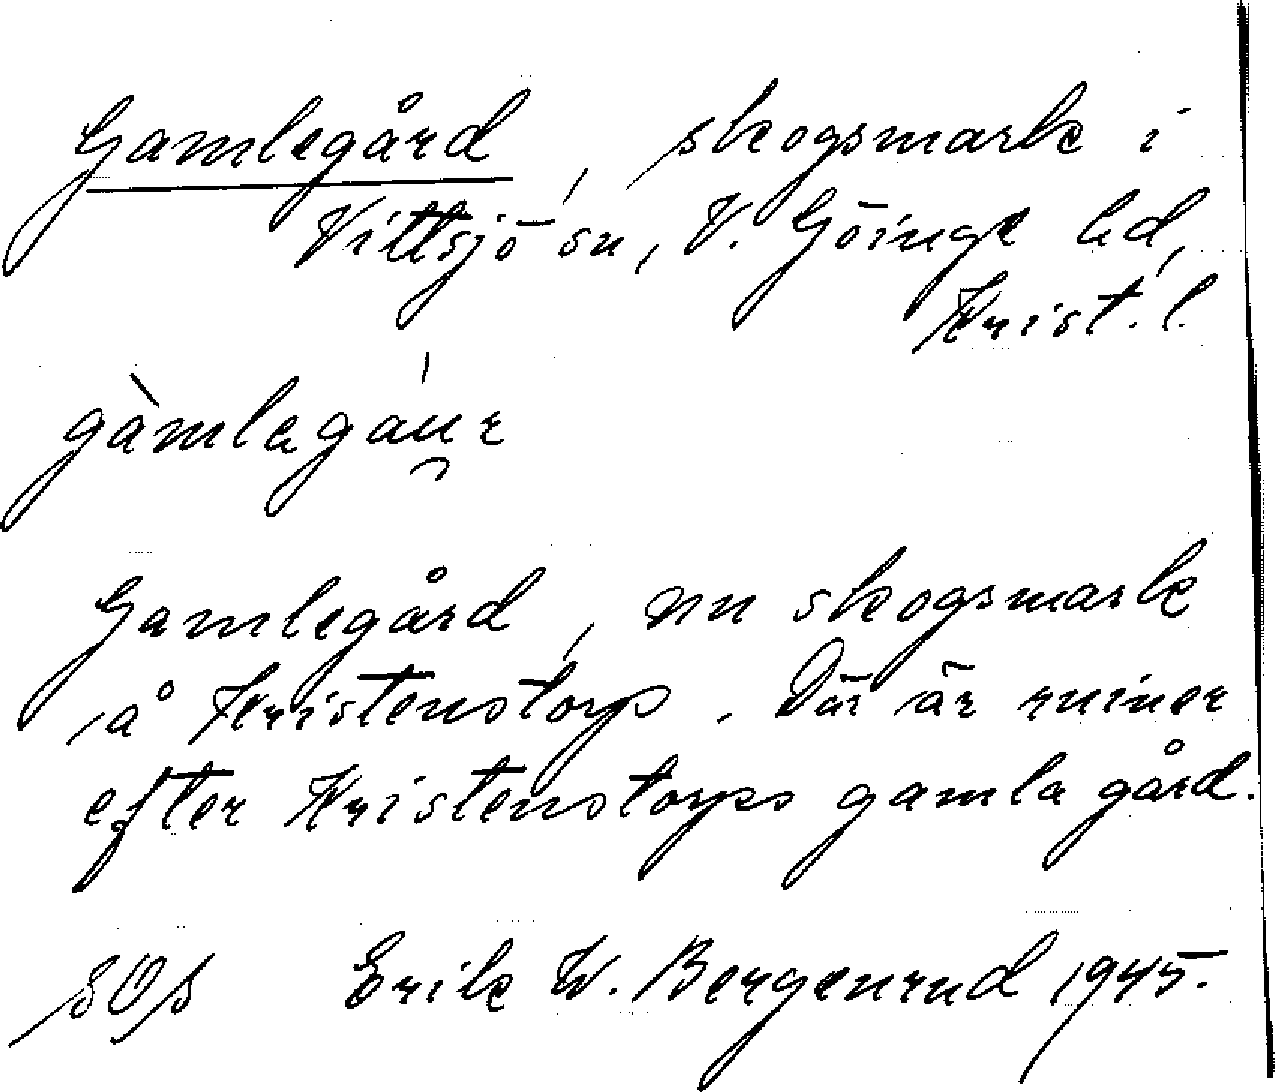 Gamlegård, skogsmark i
Vittsjö sn, V. Göinge hd,
Krist. l.
gàmlagáu̯r
Gamlegård, nu skogsmark
å Kristenstorp. Där är ruiner
efter Kristenstorps gamla gård.
Erik W. Bergenrud 1945.